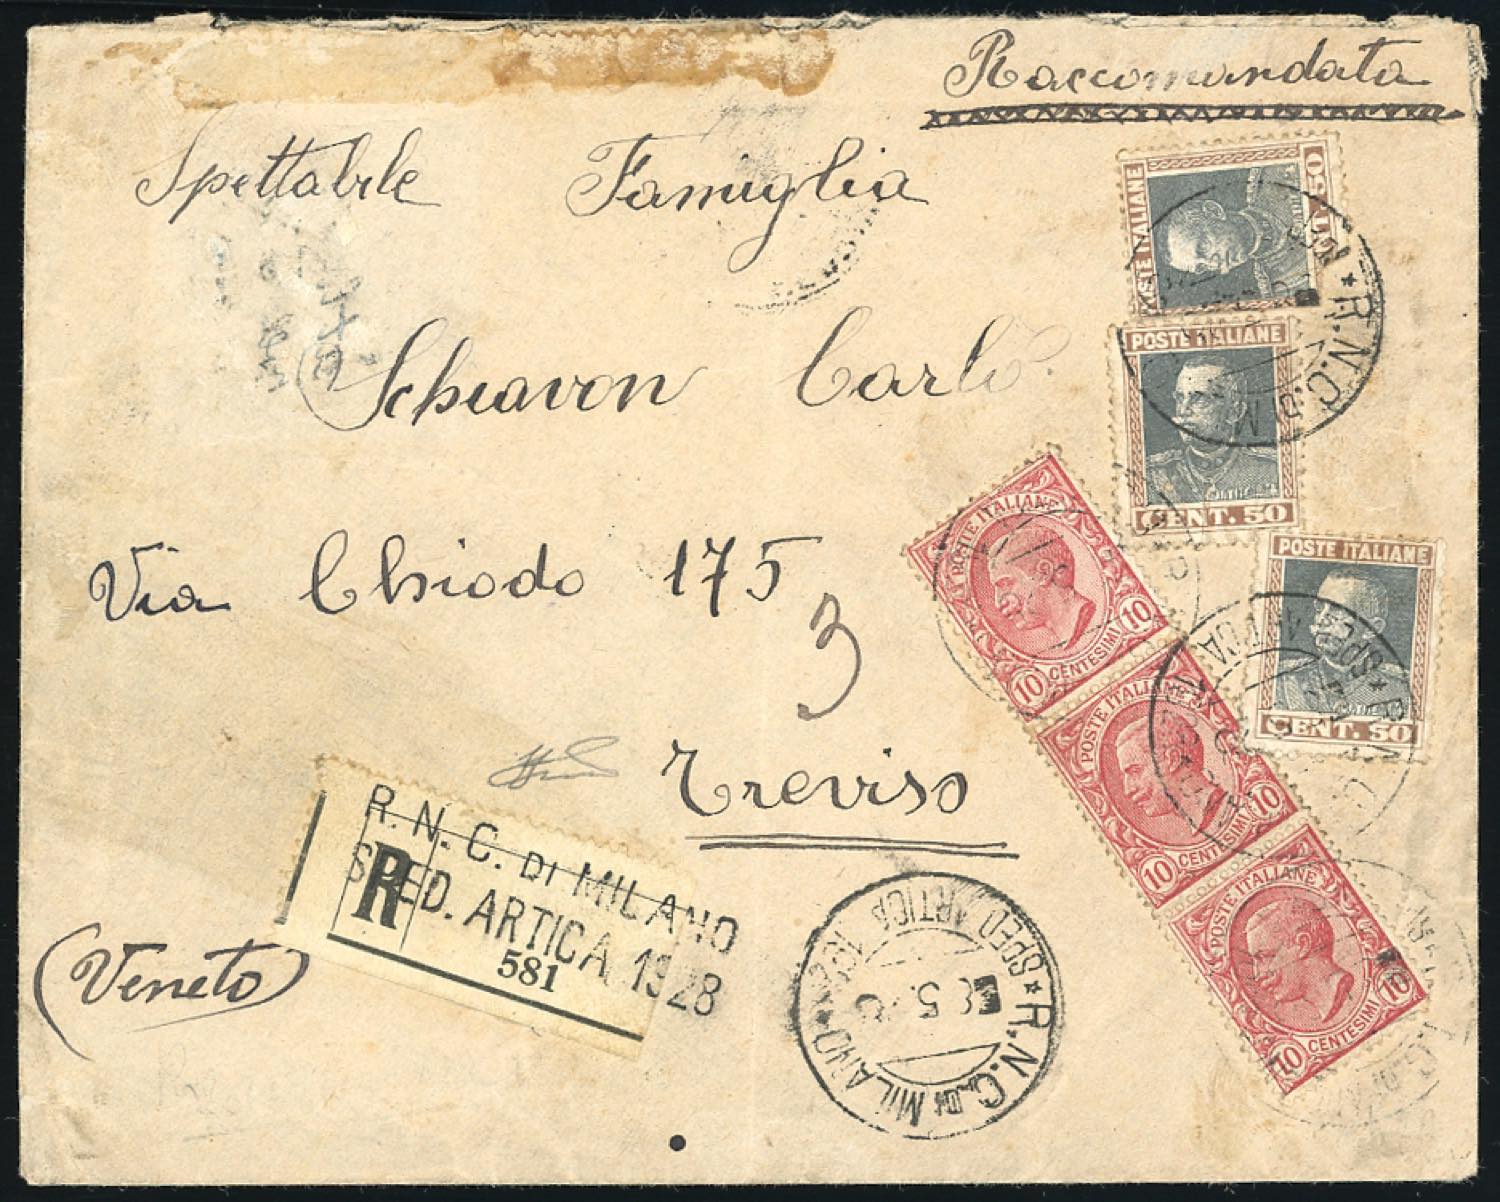 Raccomandata
Spettabile Famiglia
Schiavon Carlo
Via Chiodo 175
3
Treviso
(Veneto)
R. N. C. DI MILANO
SPED. ARTICA 1928
R
581
POSTE ITALIANE
POSTE ITALIANE
CENT. 50
POSTE ITALIANE
CENT. 50
POSTE ITALIANE
10 CENTESIMI 10
POSTE ITALIANE
10 CENTESIMI 10
POSTE ITALIANE
10 CENTESIMI 10
R.N.C. DI MILANO
SPED ARTICA